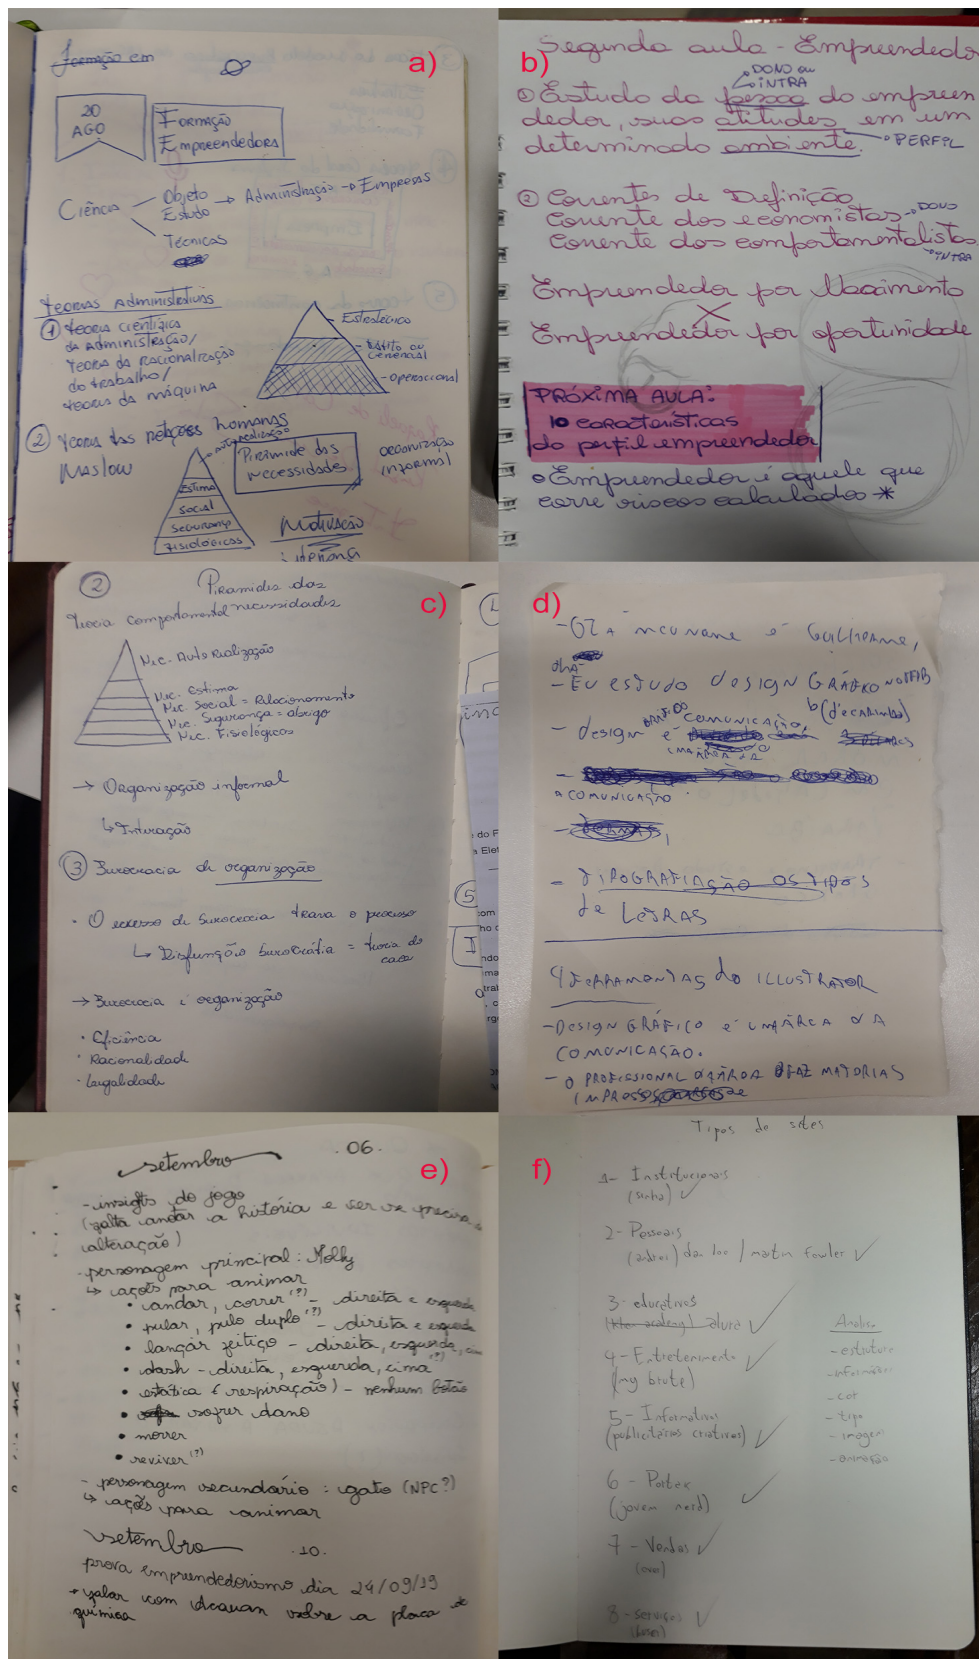 a)
Formação em
20
AGO
Formação
Empreendedora
Ciência
Objeto
Estudo → Administração → Empresas
Técnicas
Teorias Administrativas
① Teoria científica
da administração/
Teoria da racionalização
do trabalho/
Teoria da máquina
Estratégico
Tático ou
Gerencial
Operacional
② Teoria das relações humanas
Maslow
Autorealização
Estima
Social
Segurança
Fisiológicas
Pirâmide das
necessidades
organização
informal
Motivação
Liderança
b)
Segunda aula - Empreendedor
DONO ou
INTRA
① Estudo da pessoa do empreen
dedor, suas atitudes em um
determinado ambiente.
PERFIL
② Correntes de Definição
Corrente dos economistas → DONO
Corrente dos comportamentalistas
INTRA
Empreendedor por Nascimento
X
Empreendedor por oportunidade
PRÓXIMA AULA:
10 características
do perfil empreendedor
Empreendedor é aquele que
corre riscos calculados *
c)
② Piramides das
teoria comportamental necessidades
Nec. Auto Realização
Nec. Estima
Nec. Social = Relacionamento
Nec. Segurança = abrigo
Nec. Fisiológicas
→ Organização informal
↳ Interação
③ Burocracia de organização
• O excesso de burocracia trava o processo
↳ Disfunção burocrática = teoria do
caos
→ Burocracia é organização
• Eficiência
• Racionalidade
• Legalidade
d)
é Guilherme,
olha
- Eu estudo design gráfico no
- design gráfico é comunicação,
b(decarimbo)
a comunicação
- formas,
- tipografia ção os tipos
de letras
4 ferramentas do illustrator
- Design gráfico é uma área da
comunicação.
- o profissional da área faz
impressos
e)
setembro .06.
- insights do jogo
(falta contar a história e ver se precisa
alteração)
- personagem principal: Molly
↳ ações para animar
• andar, correr (?) - direita e esquerda
• pular, pulo duplo (?) - direita e esquerda
• lançar feitiço - direita, esquerda, cima
• dash - direita, esquerda, cima (?)
• estática (respiração) - nenhum botão
• sofrer dano
• morrer
• reviver (?)
- personagem secundário: gato (NPC?)
↳ ações para animar
setembro .10.
prova empreendedorismo dia 24/09/19
falar com sobre a placa de
química
f)
Tipos de sites
1- Institucionais
(senha) ✓
2- Pessoais
/ martin Fowler ✓
3- educativos
(khan academy) alura ✓
4- Entretenimento ✓
(my brute)
5- Informativos
(publicitários criativos) ✓
6- Portais
(jovem nerd) ✓
7- Vendas ✓
8- serviços ✓
Análise
- estrutura
- informação
- cor
- tipo
- imagem
- animação